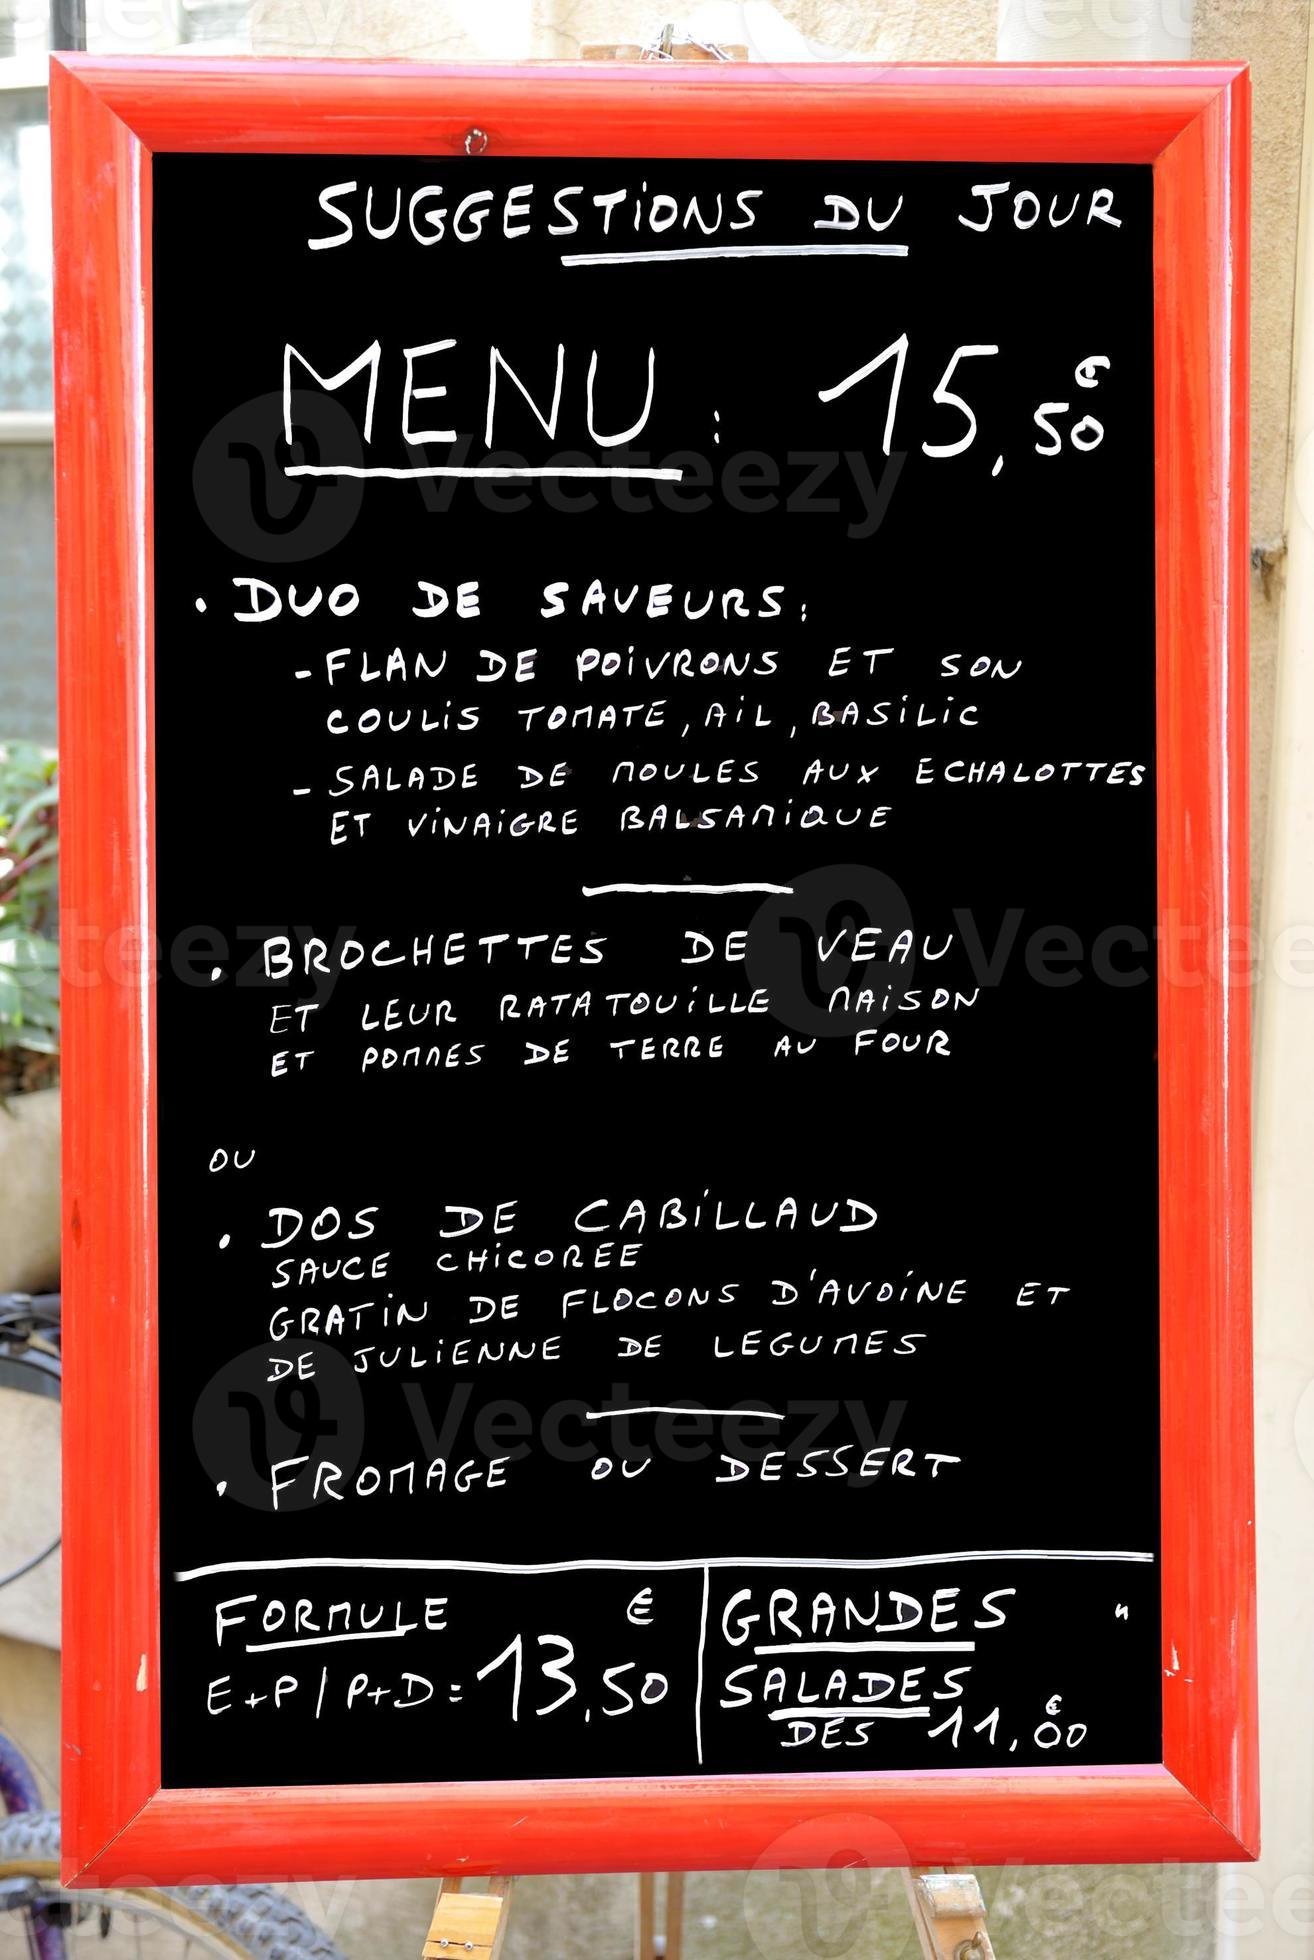 SUGGESTIONS DU JOUR
MENU : 15,50 €
. DUO DE SAVEURS:
- FLAN DE POIVRONS ET SON
COULIS TOMATE, AIL, BASILIC
- SALADE DE MOULES AUX ECHALOTTES
ET VINAIGRE BALSAMIQUE
. BROCHETTES DE VEAU
ET LEUR RATATOUILLE MAISON
ET POMMES DE TERRE AU FOUR
OU
. DOS DE CABILLAUD
SAUCE CHICOREE
GRATIN DE FLOCONS D'AVOINE ET
DE JULIENNE DE LEGUMES
. FROMAGE OU DESSERT
FORMULE
E+P / P+D = 13,50 €
GRANDES "
SALADES
DES 11,00 €
Vecteezy